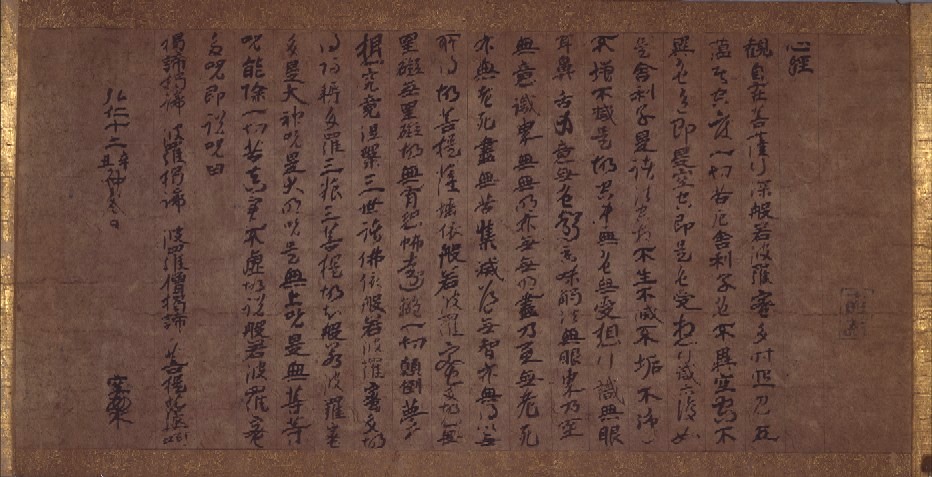 心經
觀自在菩薩行深般若波羅蜜多時照見五
蘊皆空度一切苦厄舍利子色不異空空不
異色色即是空空即是色受想行識亦復如
是舍利子是諸法空相不生不滅不垢不淨
不增不減是故空中無色無受想行識無眼
耳鼻舌身意無色聲香味觸法無眼界乃至
無意識界無無明亦無無明盡乃至無老死
亦無老死盡無苦集滅道無智亦無得以無
所得故菩提薩埵依般若波羅蜜多故無
罣礙無罣礙故無有恐怖遠離一切顛倒夢
想究竟涅槃三世諸佛依般若波羅蜜多故
得阿耨多羅三藐三菩提故知般若波羅蜜
多是大神呪是大明呪是無上呪是無等等
呪能除一切苦真實不虛故說般若波羅蜜
多呪即說呪曰
揭諦揭諦 波羅揭諦 波羅僧揭諦 菩提
弘仁十二年